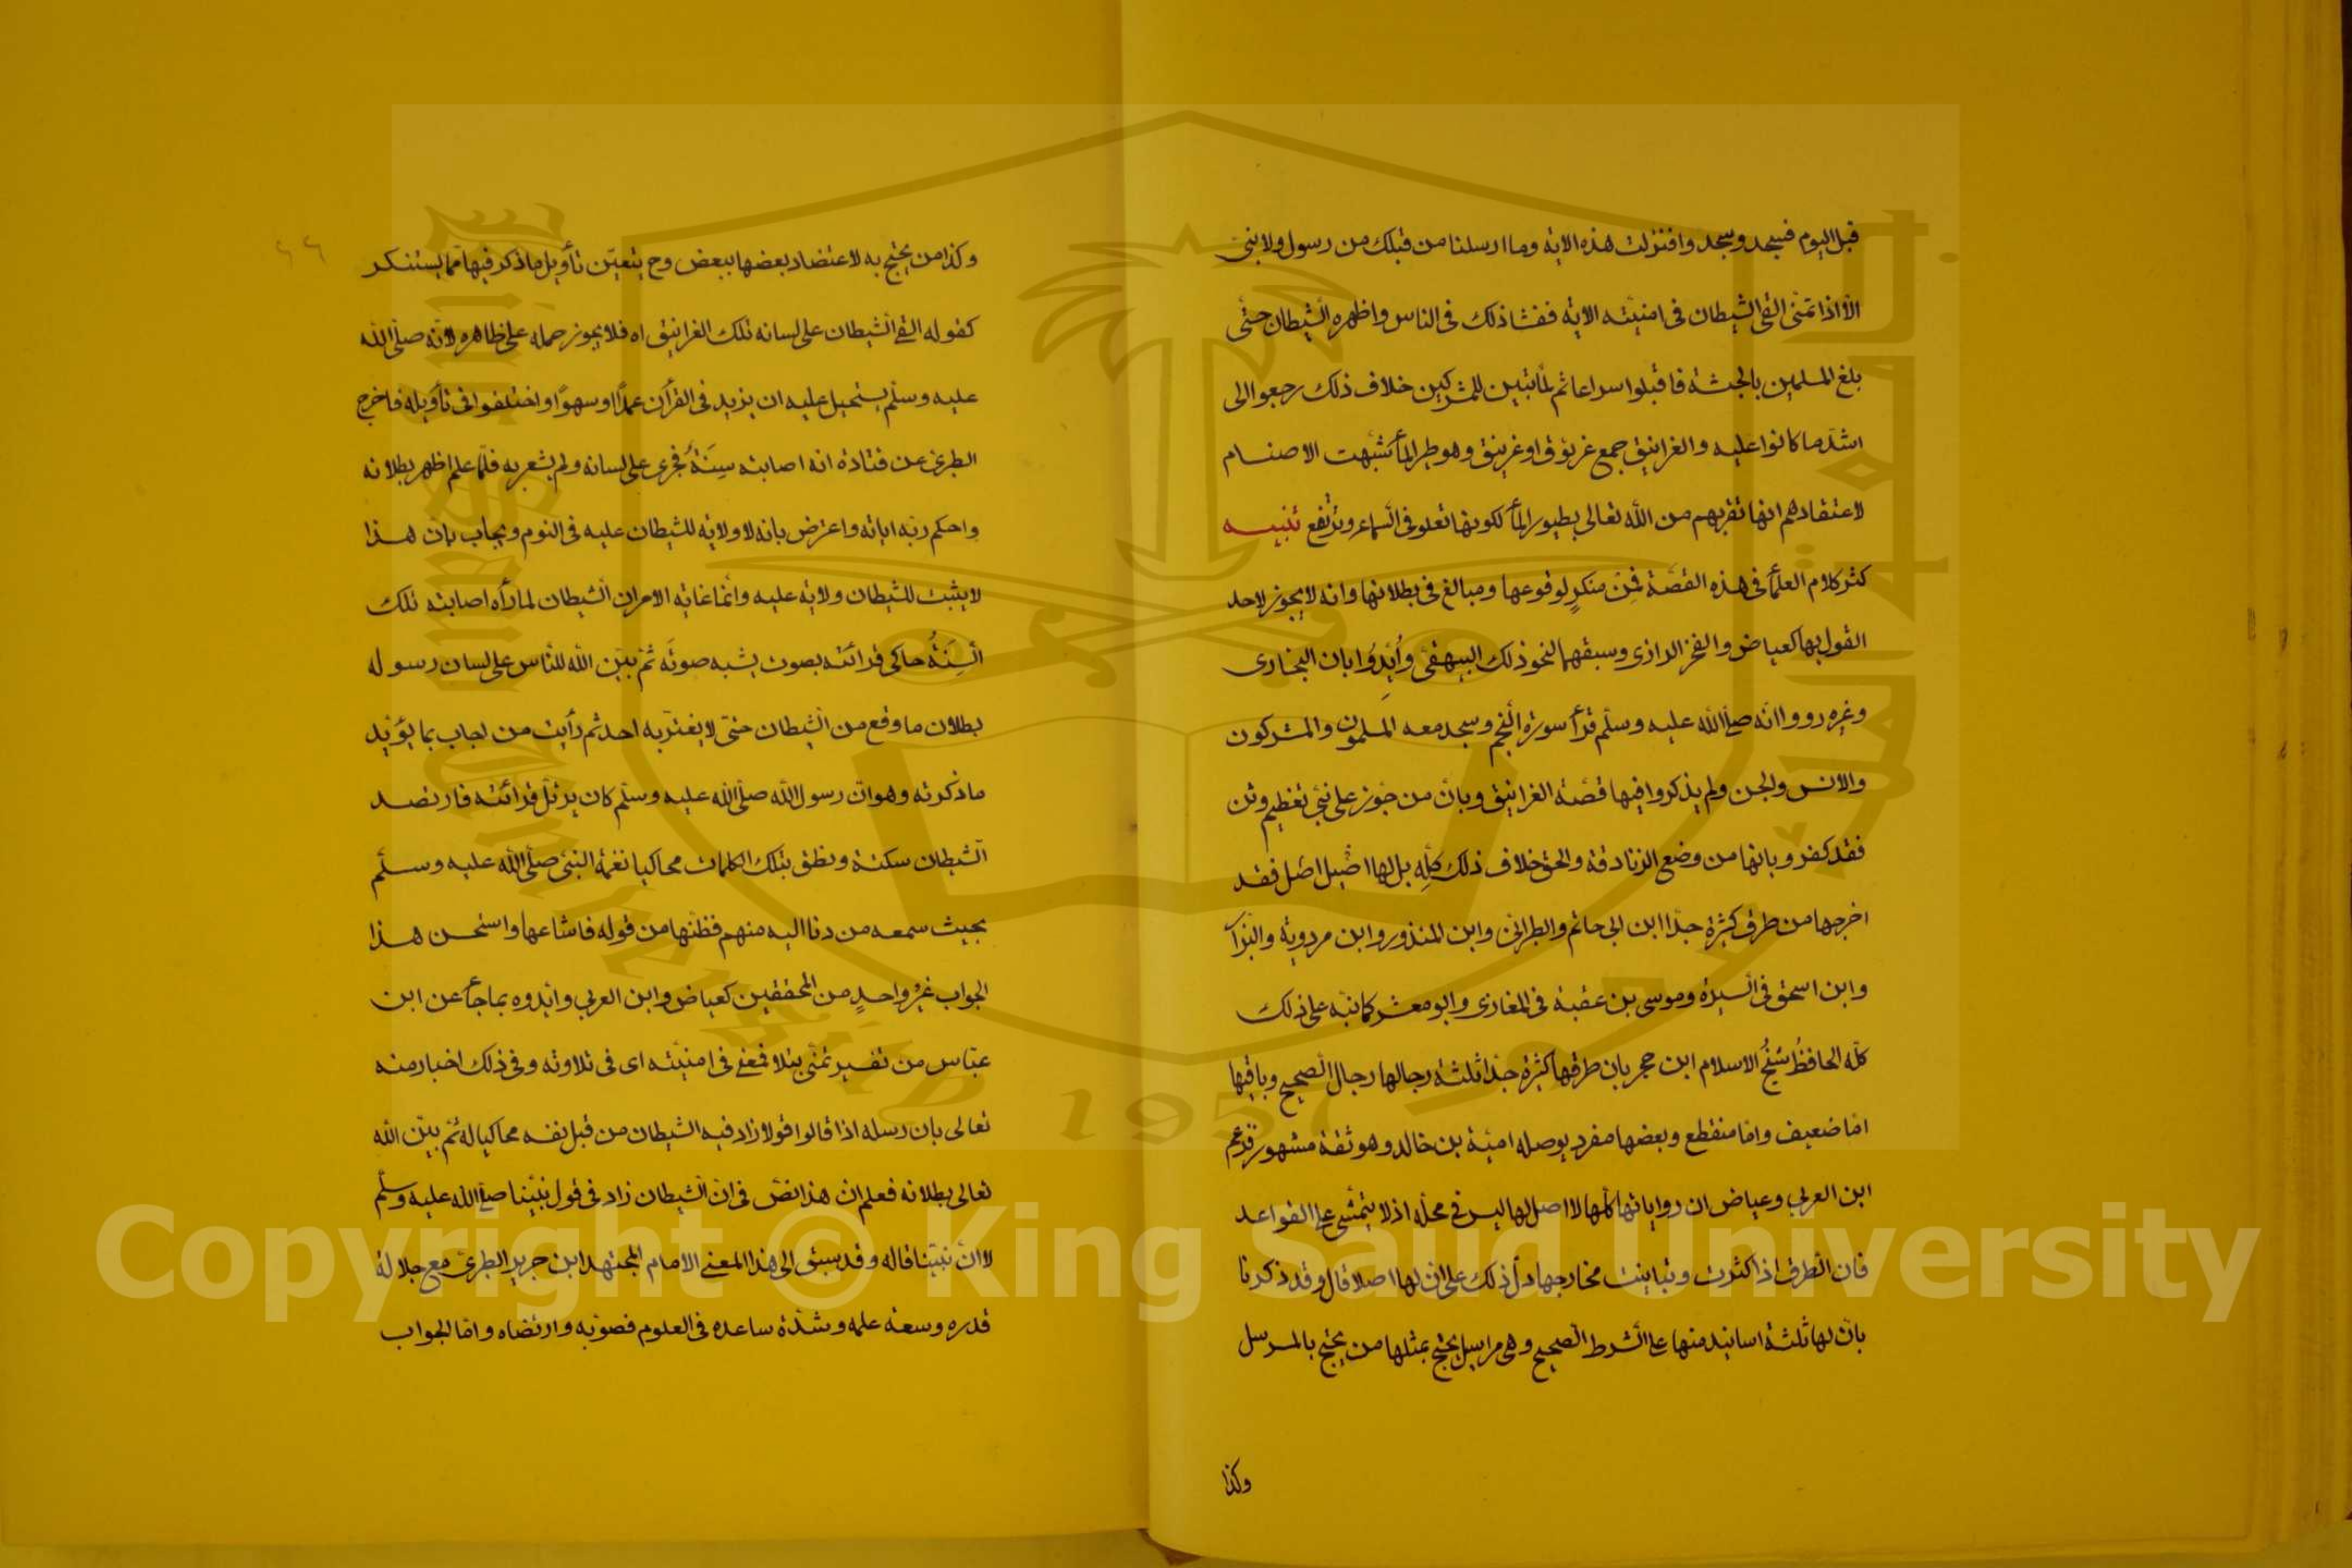 قبل اليوم فسجد وسجدوا فنزلت هذه الاية وما ارسلنا من قبلك من رسول ولا نبىّ
الّا اذا تمنّى القى الشيطان فى امنيّته الاية ففشا ذلك فى الناس واظهره الشيطان حتّى
بلغ المسلمين بالحبشة فاقبلوا سراعا ثم لمّا تبين للمشركين خلاف ذلك رجعوا الى
اشدّ ما كانوا عليه والغرانيق جمع غرنوق او غرينق وهو طير الماء شبّهت الاصنام
لاعتقادهم انها تقربهم من الله تعالى بطيور الماء لكونها تعلو فى السماء وترتفع تنبيه
كثر كلام العلماء فى هذه القصّة فمن منكرٍ لوقوعها ومبالغ فى بطلانها وانه لا يجوز لاحد
القول بها كعياض والفخر الرازى وسبقهما لنحو ذلك البيهقىّ وأيدوا بان البخارى
وغيره رووا انّه صلّى الله عليه وسلّم قرأ سورة النجم وسجد معه المسلمون والمشركون
والانس والجن ولم يذكروا فيها قصّة الغرانيق وبانّ من جوز على نبيّ تعظيم وثن
فقد كفر وبانها من وضع الزنادقة والحق خلاف ذلك كلّه بل لها اصيل اصل فقد
اخرجها من طرق كثيرة جدّا ابن ابى حاتم والطبرانى وابن المنذر وابن مردوية والبزّار
وابن اسحق فى السيرة وموسى بن عقبة فى المغازى وابو معشر كما نبّه على ذلك
كلّه الحافظُ شيخُ الاسلام ابن حجر بان طرقها كثيرة جدّا ثلثة رجالها رجال الصحيح وباقيها
امّا ضعيف وامّا منقطع وبعضها مفرد بوصله اميّة بن خالد وهو ثقة مشهور فزعم
ابن العربى وعياض ان رواياتها كلّها لا اصل لها ليس فى محلّه اذ لا يتمشّى على القواعد
فان الطرق اذا كثرت وتباينت مخارجها دلّ ذلك على ان لها اصلا قال وقد ذكرنا
بانّ لها ثلثة اسانيد منها على الشرط الصحيح وهى مراسيل يحتج بمثلها من يحتج بالمرسل
وكذا
٤٤
وكذا من يحتج به لاعتضاد بعضها ببعض وح يتعيّن تأويل ما ذكر فيها ممّا يستنكر
كقوله القى الشيطان على لسانه تلك الغرانيق اه فلا يجوز حمله على ظاهره لانّه صلّى الله
عليه وسلّم يستحيل عليه ان يزيد فى القرآن عمدًا او سهوًا واختلفوا فى تأويله فاخرج
الطبرى عن قتادة انه اصابته سِنَةٌ فجرى على لسانه ولم يشعر به فلمّا علم اظهر بطلانه
واحكم ربّه اياته واعترض بانه لا ولاية للشيطان عليه فى النوم ويجاب بان هذا
لا يثبت للشيطان ولاية عليه وانّما غاية الامر ان الشيطان لما رأه اصابته تلك
السِّنَةُ حاكى قرائته بصوت يشبه صوته ثمّ بيّن الله للنّاس على لسان رسوله
بطلان ما وقع من الشيطان حتى لا يغترّ به احد ثم رأيت من اجاب بما يؤيد
ما ذكرته وهو انّ رسول الله صلّى الله عليه وسلّم كان يرتل قرائته فارتصد
الشيطان سكتة ونطق بتلك الكلمات محاكيا نغمة النبى صلّى الله عليه وسلّم
بحيث سمعه من دنا اليه منهم فظنّها من قوله فاشاعها واستحسن هذا
الجواب غيرُ واحدٍ من المحققين كعياض وابن العربى وايّدوه بما جاء عن ابن
عبّاس من تفسير تمنّى بتلا فمعنى فى امنيّته اى فى تلاوته وفى ذلك اخبار منه
تعالى بان رسله اذا قالوا قولا زاد فيه الشيطان من قبل نفسه محاكيا له ثم بيّن الله
تعالى بطلانه فعلم ان هذا نصّ فى ان الشيطان زاد فى قول نبيّنا صلى الله عليه وسلّم
لا انّ نبيّنا قاله وقد سبق الى هذا المعنى الامام المجتهد ابن جرير الطبرى مع جلالة
قدره وسعة علمه وشدّة ساعده فى العلوم فصوّبه وارتضاه وامّا الجواب
Copyright © King Saud University
1957